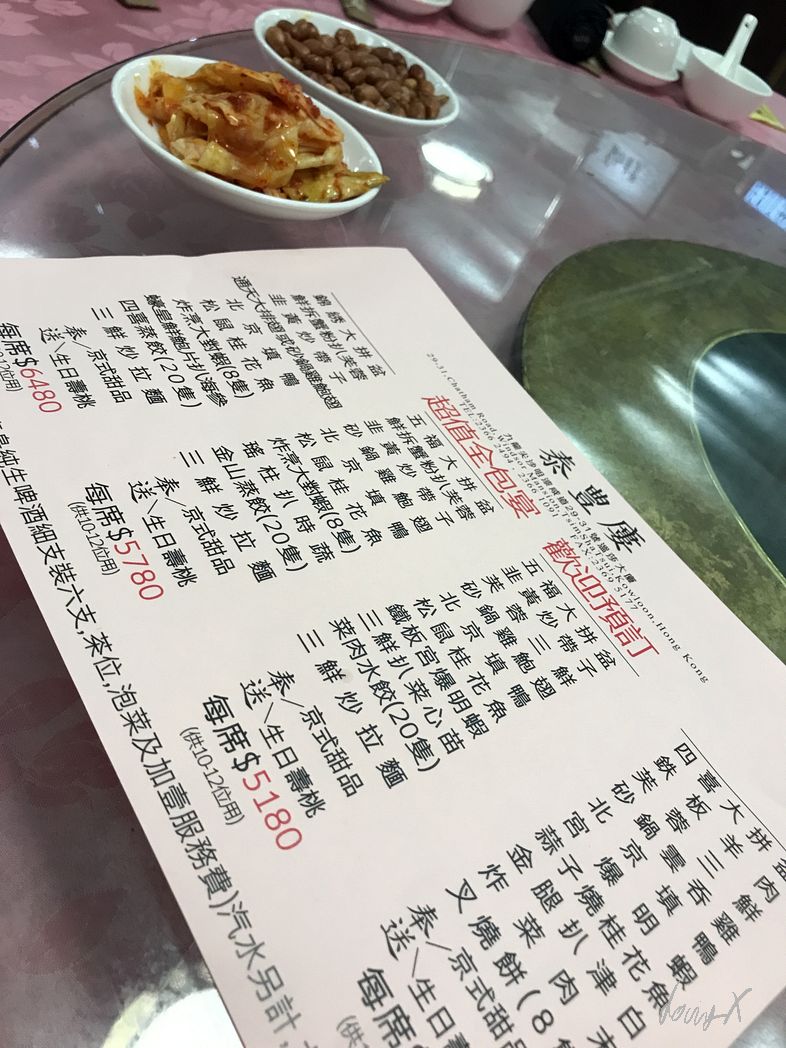 泰豐廔
九龍尖沙咀漆咸道29-31號溫莎大廈
29-31,Chatham Road,Windsor Mansion,TsimShaTsui,Kowloon,Hong Kong
TEL:2366 2494 , 2366 1091 FAX:2369 5177
超值全包宴 歡迎預訂
錦綉大拼盆
鮮拆蟹粉扒芙蓉
韭黃炒帶子
通天大排翅或砂鍋雞鮑翅
北京填鴨
松鼠桂花魚
炸烹大對蝦(8隻)
蠔皇鮮鮑片扒海參
四喜蒸餃(20隻)
三鮮炒拉麵
奉/京式甜品
送\生日壽桃
每席$6480
五福大拼盆
鮮拆蟹粉扒芙蓉
韭黃炒帶子
砂鍋雞鮑翅
北京填鴨
松鼠桂花魚
炸烹大對蝦(8隻)
瑤柱扒時蔬
金山蒸餃(20隻)
三鮮炒拉麵
奉/京式甜品
送\生日壽桃
每席$5780
(供10-12位用)
五福大拼盆
韭黃炒帶子
芙蓉三鮮
砂鍋雞鮑翅
北京填鴨
松鼠桂花魚
鐵板宮爆明蝦
三鮮扒菜心苗
菜肉水餃(20隻)
三鮮炒拉麵
奉/京式甜品
送\生日壽桃
每席$5180
(供10-12位用)
四喜大拼盆
鉄板羊肉
芙蓉三鮮
砂鍋雲吞雞
北京填鴨
宮爆明蝦
蒜子燒桂花魚
金腿扒津白
炸菜肉
叉燒餅(8隻
奉/京式甜品
送\生日壽
每席
純生啤酒細支裝六支,茶位,泡菜及加壹服務費)汽水另計,